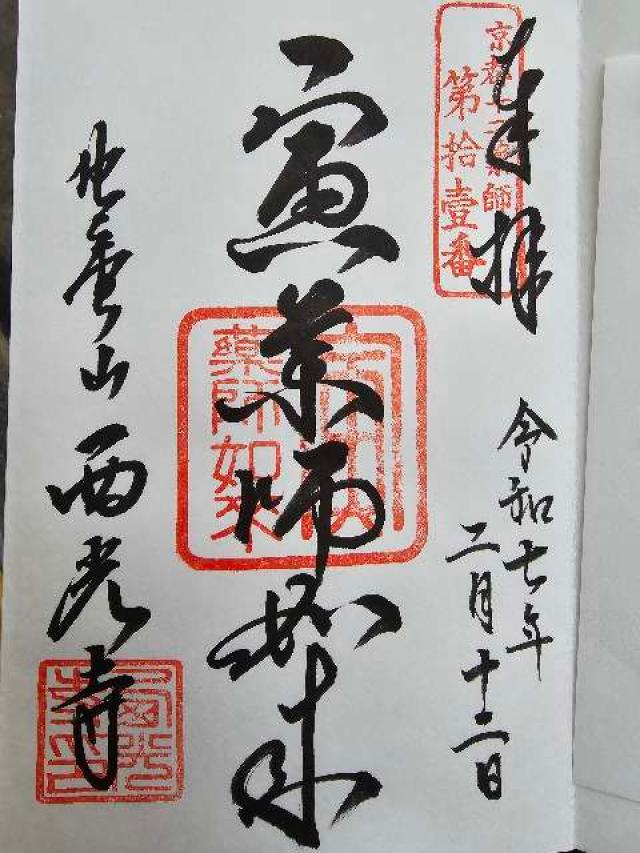 奉拝
京都十二薬師
第拾壹番
令和七年
二月十二日
寅薬師如来
薬師如来
地雲山 西光寺